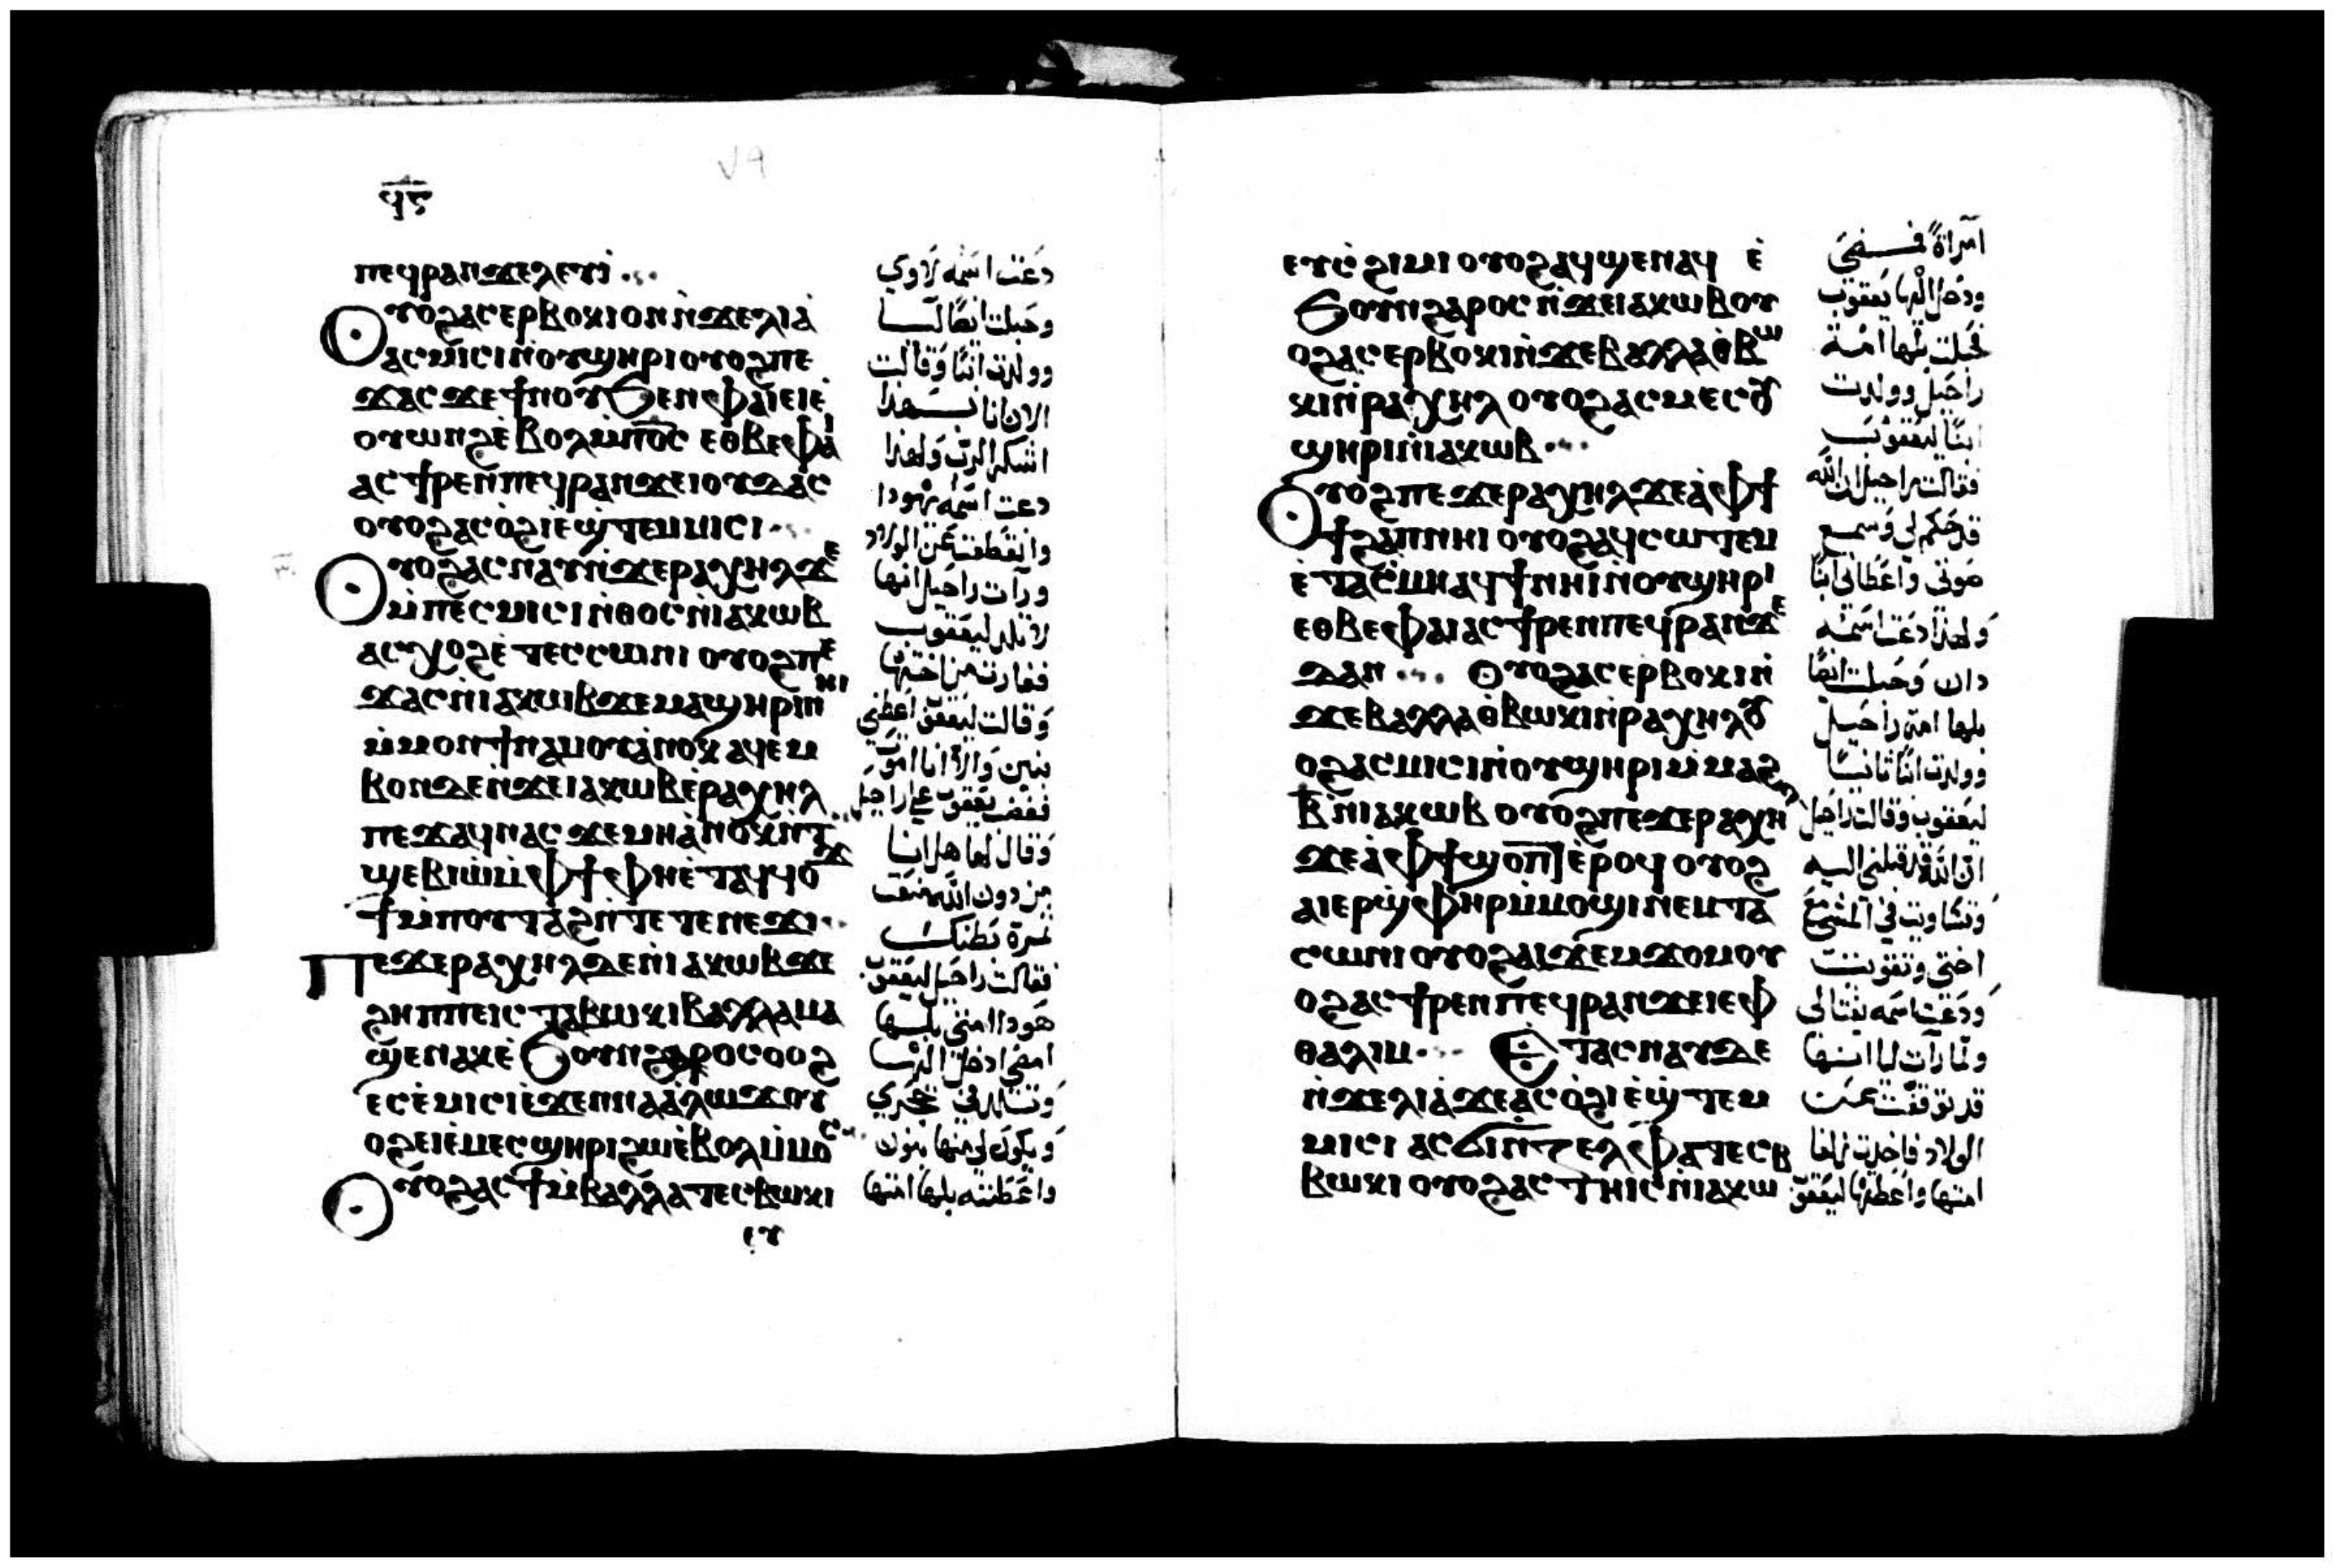 ϥⲋ
ⲡⲉϥⲣⲁⲛϫⲉⲗⲉⲩⲓ̀
Ⲟⲩⲟϩⲁⲥⲉⲣⲃⲟⲕⲓⲟⲛⲛ̀ϫⲉⲗⲓⲁ̀
ⲁⲥⲙⲓⲥⲓⲛ̀ⲟⲩϣⲏⲣⲓⲟⲩⲟϩⲡⲉ
ϫⲁⲥϫⲉϯⲛⲟⲩϧⲉⲛⲫⲁⲓⲉⲓⲉ̀
ⲟⲩⲱⲛϩⲉ̀ⲃⲟⲗⲙ̀ⲡⲟ̅ⲥ̅ ⲉⲑⲃⲉⲫⲁⲓ
ⲁⲥϯⲣⲉⲛⲡⲉϥⲣⲁⲛϫⲉⲓⲟⲩⲇⲁⲥ
ⲟⲩⲟϩⲁⲥⲟ̀ϩⲓⲉ̀ϣ̀ⲧⲉⲙⲙⲓⲥⲓ
Ⲟⲩⲟϩⲁⲥⲛⲁⲩⲛ̀ϫⲉⲣⲁⲭⲏⲗϫⲉ
ⲙ̀ⲡⲉⲥⲙⲓⲥⲓⲛ̀ⲑⲟⲥⲛ̀ⲓⲁⲕⲱⲃ
ⲁⲥⲭⲟϩⲉ̀ⲧⲉⲥⲥⲱⲛⲓ ⲟⲩⲟϩⲡⲉ
ϫⲁⲥⲛ̀ⲓⲁⲕⲱⲃϫⲉⲙⲁϣⲏⲣⲓⲛⲏⲓ
ⲙ̀ⲙⲟⲛϯⲛⲁⲙⲟⲩⲁ̀ⲛⲟⲕ ⲁϥⲉⲙ
ⲃⲟⲛⲇⲉⲛ̀ϫⲉⲓⲁⲕⲱⲃⲉ̀ⲣⲁⲭⲏⲗ
ⲡⲉϫⲁϥⲛⲁⲥ ϫⲉⲙⲏⲁ̀ⲛⲟⲕⲛ̀ⲧ
ϣⲉⲃⲓⲱ̀ⲙ̀ⲫϯⲫⲏⲉ̀ⲧⲁϥϥⲟϫ
ϯⲙ̀ⲡⲟⲩⲧⲁϩⲛ̀ⲧⲉⲧⲉⲛⲉϫⲓ
Ⲡⲉϫⲉⲣⲁⲭⲏⲗⲇⲉⲛ̀ⲓⲁⲕⲱⲃϫⲉ
ϩⲏⲡⲡⲉⲓⲥ ⲧⲁⲃⲱⲕⲓⲃⲁⲗⲗⲁⲙⲁ
ϣⲉⲛⲁⲕⲉ̀ϧⲟⲩⲛϩⲁⲣⲟⲥⲟⲟϩ
ⲉⲥⲉ̀ⲙⲓⲥⲓⲉ̀ϫⲉⲛⲛⲁⲁ̀ⲗⲱϫⲟⲩ
ⲟϩⲉⲓⲉ̀ⲙⲉⲥϣⲏⲣⲓϩⲱⲉ̀ⲃⲟⲗⲙ̀ⲙⲟⲥ
Ⲟⲩⲟϩⲁⲥϯⲙ̀ⲃⲁⲗⲗⲁⲧⲉⲥⲃⲱⲕⲓ
ⲉⲩ
دعت اسمه لاوي
وحبلت ايضًا ليـا
وولدت ابنًا وقالت
الان انا بهذا
اشكر الرب ولهذا
دعت اسمه يهودا
وانقطعت عن الولاد
ورآت راحيل انها
لا تلد ليعقوب
فغارت من اختها
وقالت ليعقوب اعطني
بنين والا انا اموت
فغضب يعقوب علي راحيل
وقال لها هل انا
من دون الله منعت
ثمرة بطنك
فقالت راحيل ليعقوب
هودا امتي بلها
امضي ادخل اليها
وتلد في حجري
ويكون لي منها بنون
واعطته بلها امتها
ⲉⲩⲥ̀ϩⲓⲙⲓ ⲟⲩⲟϩⲁϥϣⲉⲛⲁϥ ⲉ̀
ϧⲟⲩⲛϩⲁⲣⲟⲥ ⲛ̀ϫⲉⲓⲁⲕⲱⲃⲟⲩ
ⲟϩⲁⲥⲉⲣⲃⲟⲕⲓⲛ̀ϫⲉⲃⲁⲗⲗⲁⲑ̀ⲃⲱ
ⲕⲓⲛ̀ⲣⲁⲭⲏⲗ ⲟⲩⲟϩⲁⲥⲙⲉⲥⲟⲩ
ϣⲏⲣⲓⲛ̀ⲓⲁⲕⲱⲃ
Ⲟⲩⲟϩⲡⲉϫⲉⲣⲁⲭⲏⲗϫⲉⲁ̀ⲫϯ
ϯϩⲁⲡⲛⲏⲓ ⲟⲩⲟϩⲁϥⲥⲱⲧⲉⲙ
ⲉ̀ⲧⲁⲥ̀ⲙⲏⲁϥϯⲛⲏⲓⲛ̀ⲟⲩϣⲏⲣⲓ
ⲉⲑⲃⲉⲫⲁⲓⲁⲥϯⲣⲉⲛⲡⲉϥⲣⲁⲛϫⲉ
ⲇⲁⲛ Ⲟⲩⲟϩⲁⲥⲉⲣⲃⲟⲕⲓⲛ̀
ϫⲉⲃⲁⲗⲗⲁⲑ̀ⲃⲱⲕⲓⲛ̀ⲣⲁⲭⲏⲗⲟⲩ
ⲟϩⲁⲥⲙⲓⲥⲓⲛ̀ⲟⲩϣⲏⲣⲓⲙ̀ⲙⲁϩ
ⲃ̅ⲛ̀ⲓⲁⲕⲱⲃ ⲟⲩⲟϩⲡⲉϫⲉⲣⲁⲭⲏⲗ
ϫⲉⲁ̀ⲫϯϣⲟⲡⲧ ⲉ̀ⲣⲟϥ ⲟⲩⲟϩ
ⲁⲓⲉⲣϣ̀ⲫⲏⲣⲙ̀ⲙⲟϣⲓⲛⲉⲙⲧⲁ
ⲥⲱⲛⲓ ⲟⲩⲟϩⲁⲓϫⲉⲙϫⲟⲙⲟⲩ
ⲟϩⲁⲥϯⲣⲉⲛ ⲡⲉϥⲣⲁⲛϫⲉⲓⲉⲫ
ⲑⲁⲗⲓⲙ Ⲉⲧⲁⲥⲛⲁⲩⲇⲉ
ⲛ̀ϫⲉⲗⲓⲁ̀ϫⲉⲁ̀ⲥⲟ̀ϩⲓ ⲉ̀ϣ̀ⲧⲉⲙ
ⲙⲓⲥⲓ ⲁⲥϭⲓⲛ̀ⲍⲉⲗⲫⲁⲧⲉⲥⲃ
ⲃⲱⲕⲓ ⲟⲩⲟϩⲁⲥⲧⲏⲓⲥⲛ̀ⲓⲁⲕⲱ
ودخل اليها يعقوب
فحبلت بلها امـة
راحيل وولدت
ابنًا ليعقوب
فقالت راحيل ان الله
قد حكم لي وسمع
صوتي واعطاني ابنًا
ولهذا دعت اسمه
دان وحبلت ايضًا
بلها امة راحيل
وولدت ابنًا ثانيـًا
ليعقوب وقالت راحيل
ان الله قد قبلني اليه
وتساويت في المشي مع
اختي وتقويت
ودعت اسمه نفتالي
ولما رآت ليا انـها
قد توقفت عـن
الولاد فاخدت زلفا
امتها واعطتها ليعقوب